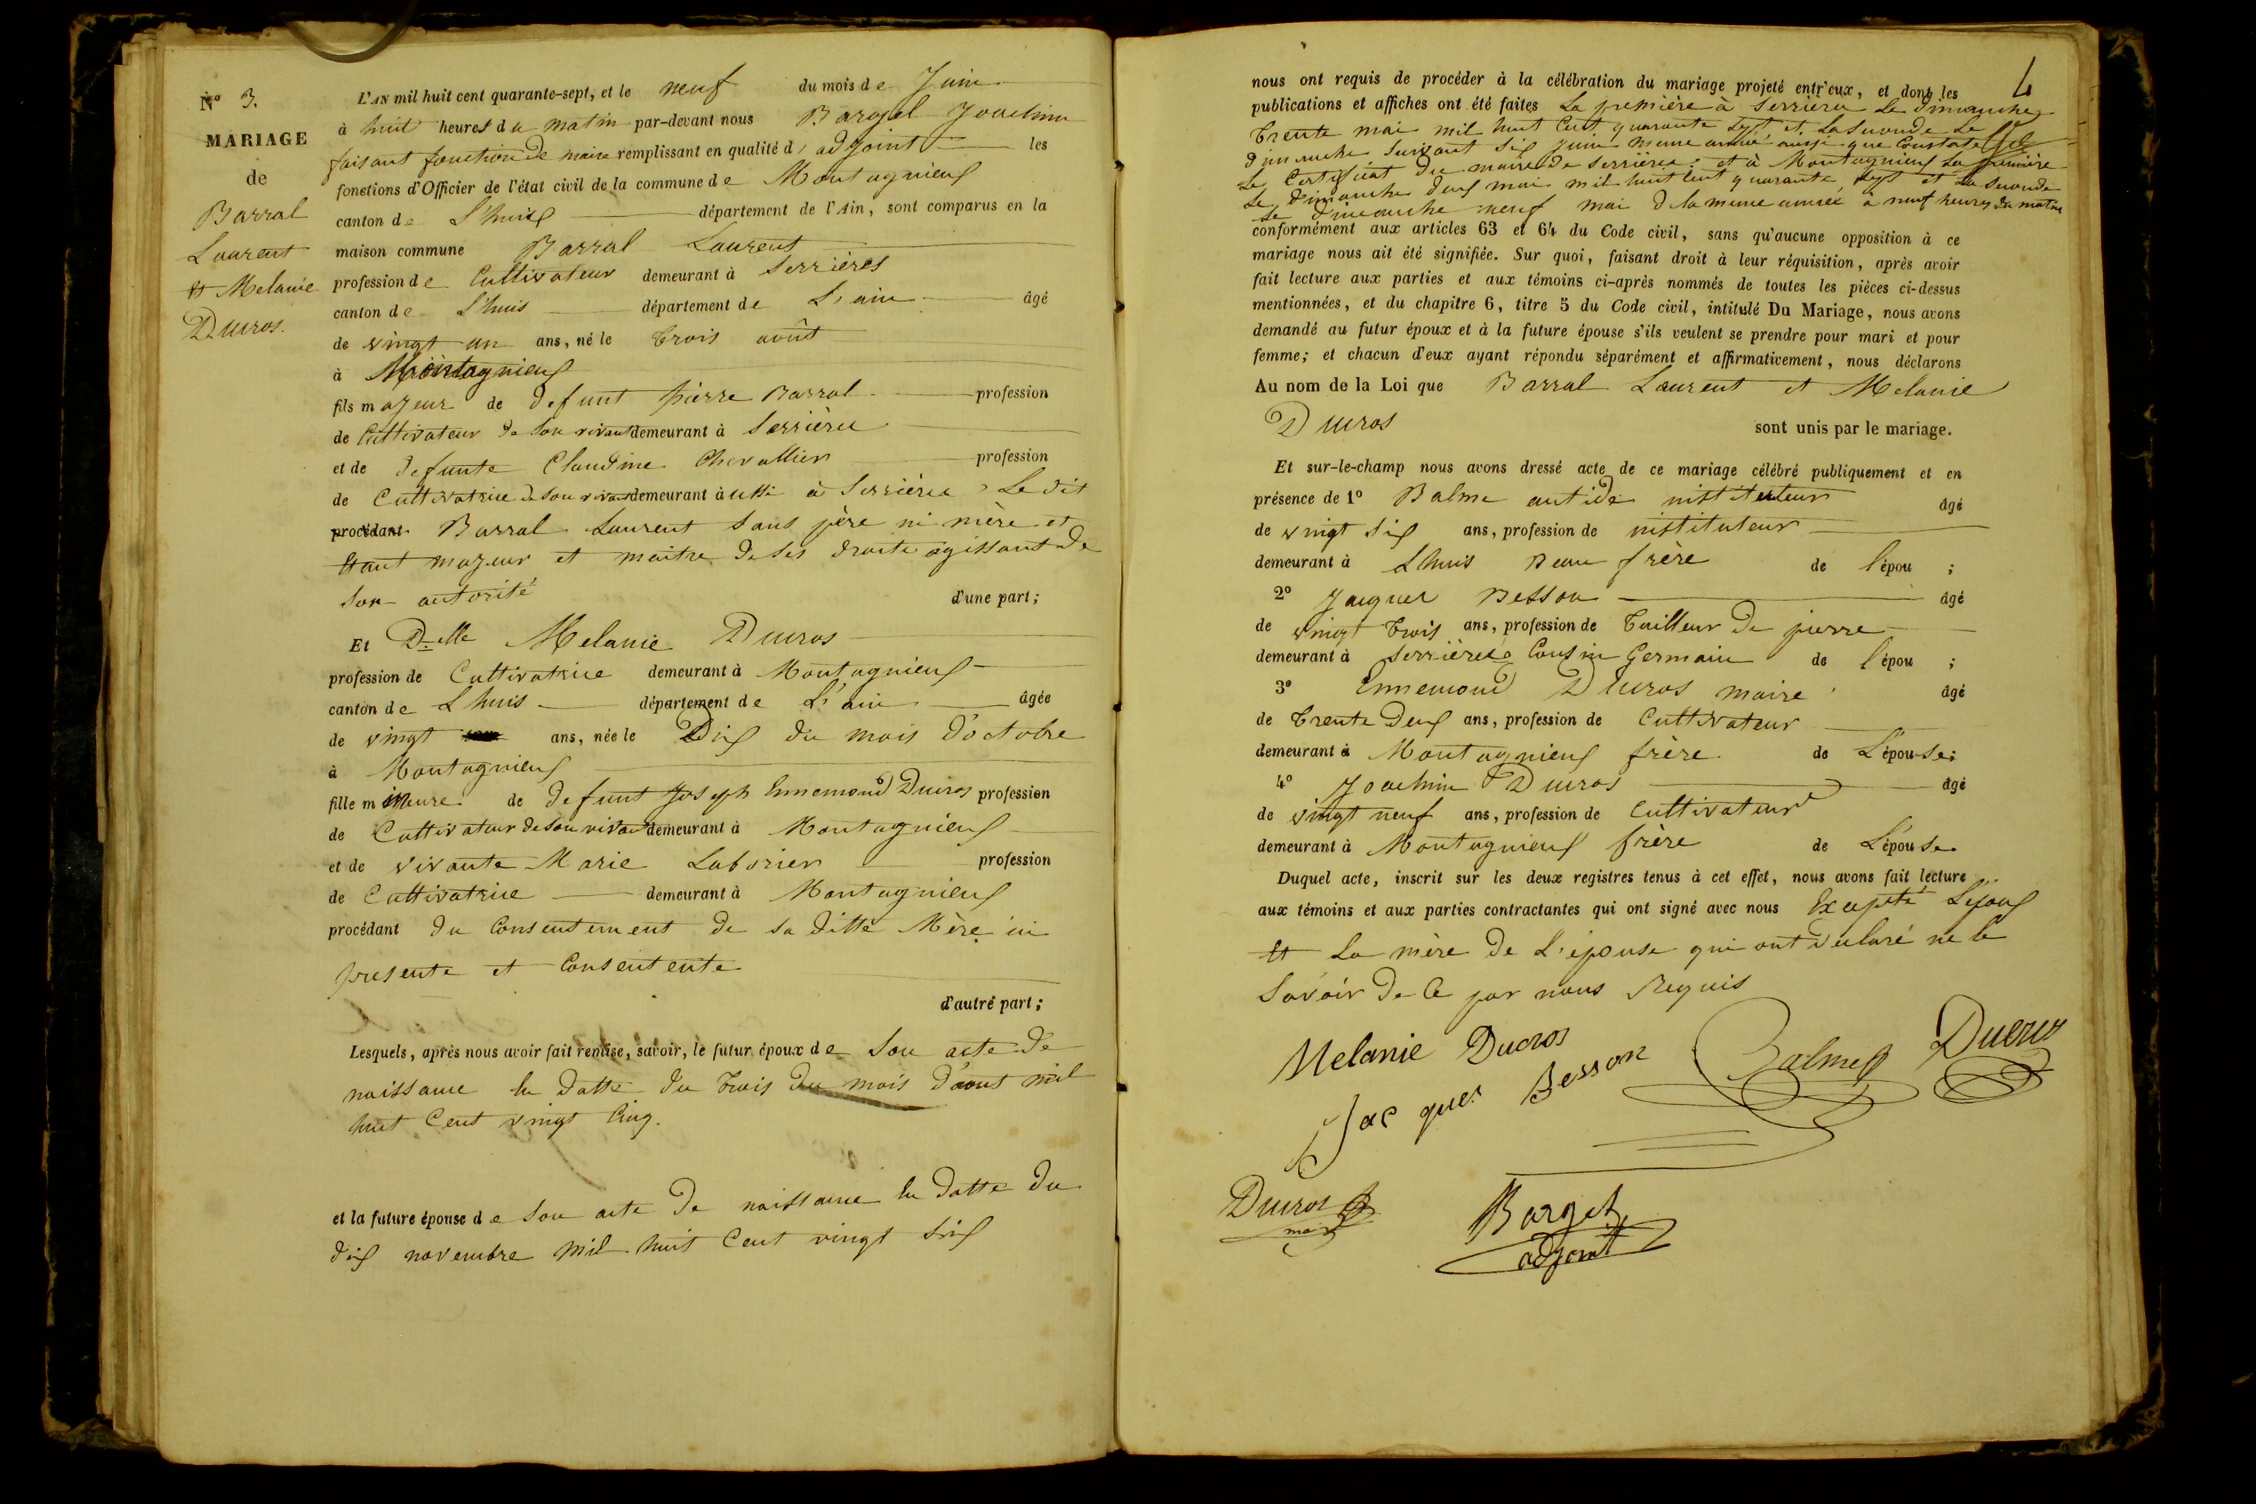 N° 3.
MARIAGE
de
Barral
Laurent
et Melanie
Ducros.
L'AN mil huit cent quarante-sept, et le neuf du mois de Juin
à huit heures du matin par-devant nous Joachim
faisant fonction de maire remplissant en qualité d' adjoint les
fonctions d'Officier de l'état civil de la commune de Montagnieux
canton de Lhuis département de l'Ain, sont comparus en la
maison commune Barral Laurent
profession de Cultivateur demeurant à Serrières
canton de Lhuis département de L'ain âgé
de vingt un ans, né le trois août
à Montagnieux
fils majeur de defunt pierre Barral profession
de Cultivateur de son vivant demeurant à Serrières
et de defunte Claudine Chevallier profession
de Cultivatrice de son vivant demeurant à Serrières Le dit
procédant Barral Laurent sans père ni mère et
Etant majeur et maitre de ses droits agissant de
son autorité d'une part;
Et D.elle Melanie Ducros
profession de Cultivatrice demeurant à Montagnieux
canton de Lhuis département de L'ain âgée
de vingt ans, née le Dix du mois d'octobre
à Montagnieux
fille mineure de defunt Joseph Ennemond Ducros profession
de Cultivateur de son vivant demeurant à Montagnieux
et de vivante Marie Laborier profession
de Cultivatrice demeurant à Montagnieux
procédant du Consentement de sa ditte Mère ici
presente et Consentente
d'autre part;
Lesquels, après nous avoir fait remise, savoir, le futur époux de son acte de
naissance en datte du trois du mois d'aout mil
huit Cent vingt Cinq.
et la future épouse de son acte de naissance en datte du
dix novembre mil huit Cent vingt six
4
nous ont requis de procéder à la célébration du mariage projeté entr'eux, et dont les
publications et affiches ont été faites La première à Serrières Le dimanche
trente mai mil huit Cent quarante sept, et La seconde Le
dimanche suivant six juin meme année aussi que Constate
Le Certificat du maire de Serrières; et à Montagnieux La première
Le dimanche deux mai mil huit Cent quarante sept et La seconde
Le dimanche neuf mai de la meme année à neuf heures du matin
conformément aux articles 63 et 64 du Code civil, sans qu'aucune opposition à ce
mariage nous ait été signifiée. Sur quoi, faisant droit à leur réquisition, après avoir
fait lecture aux parties et aux témoins ci-après nommés de toutes les pièces ci-dessus
mentionnées, et du chapitre 6, titre 5 du Code civil, intitulé Du Mariage, nous avons
demandé au futur époux et à la future épouse s'ils veulent se prendre pour mari et pour
femme; et chacun d'eux ayant répondu séparément et affirmativement, nous déclarons
Au nom de la Loi que Barral Laurent et Melanie
Ducros sont unis par le mariage.
Et sur-le-champ nous avons dressé acte de ce mariage célébré publiquement et en
présence de 1° Balme antide instituteur âgé
de vingt six ans, profession de instituteur
demeurant à Lhuis Beau frère de l'épou ;
2° Jacques Besson âgé
de vingt trois ans, profession de tailleur de pierre
demeurant à Serrières Cousin Germain de l'épou ;
3° Ennemond Ducros maire âgé
de trente deux ans, profession de Cultivateur
demeurant à Montagnieux frère de L'épouse;
4° Joachim Ducros âgé
de vingt neuf ans, profession de Cultivateur
demeurant à Montagnieux frère de L'épouse.
Duquel acte, inscrit sur les deux registres tenus à cet effet, nous avons fait lecture
aux témoins et aux parties contractantes qui ont signé avec nous Excepté Lepoux
et La mère de L'épouse qui ont déclaré ne le
Savoir de Ce par nous Requis
Melanie Ducros
Jacques Besson
Balme
Ducros
Ducros
maire
Barget
adjoint